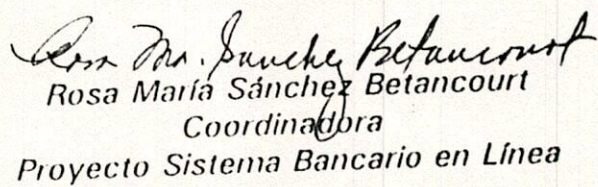 Rosa Ma. Sanchez Betancourt
Rosa María Sánchez Betancourt
Coordinadora
Proyecto Sistema Bancario en Línea